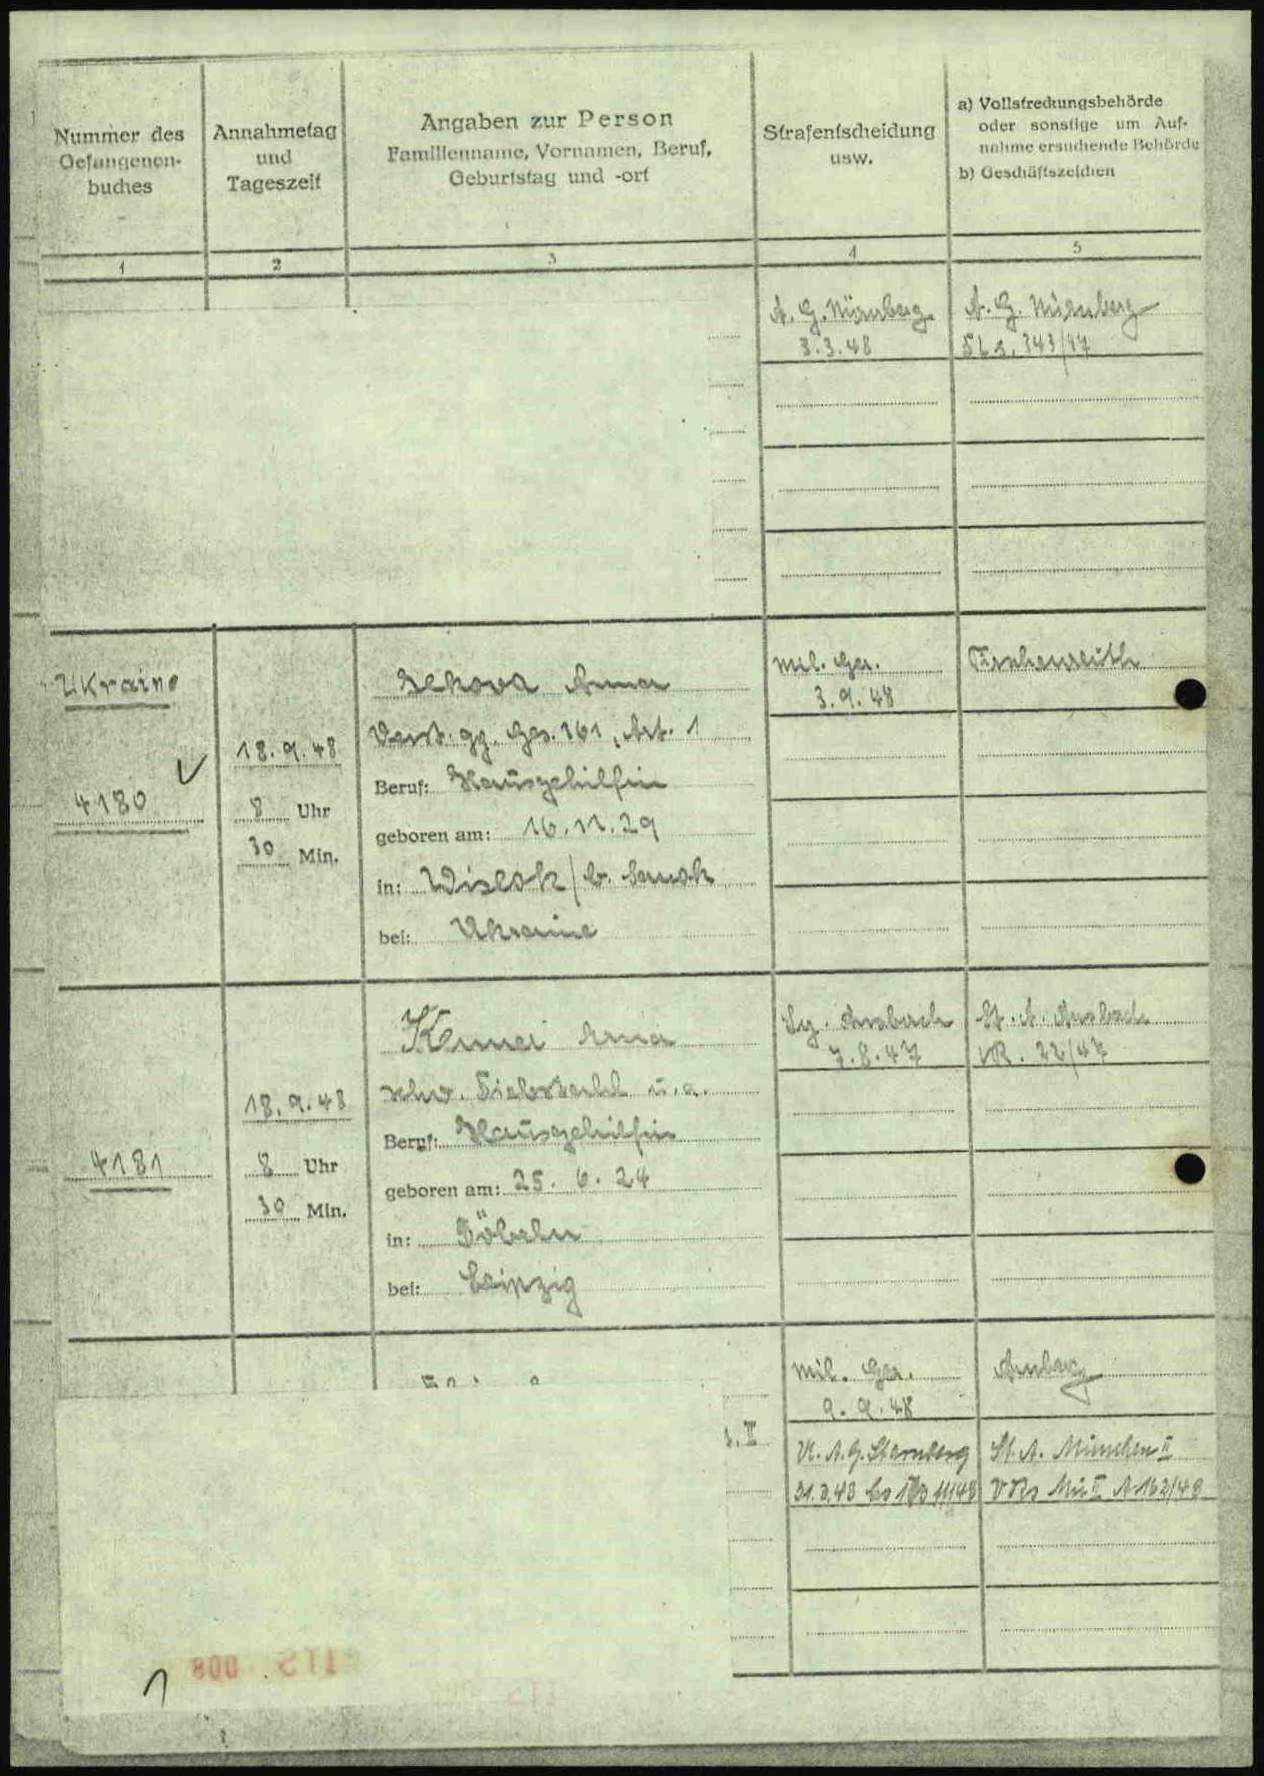 Nummer des
Gefangenen-
buches
Annahmetag
und
Tageszeit
Angaben zur Person
Familienname, Vornamen, Beruf,
Geburtstag und -ort
Strafentscheidung
usw.
a) Vollstreckungsbehörde
oder sonstige um Auf-
nahme ersuchende Behörde
b) Geschäftszeichen
1
2
3
4
5
A. G. Nürnberg
3.3.48
A. G. Nürnberg
343/47
Ukraine
4180
18.9.48
8 Uhr
30 Min.
Anna
Verst. gg. Ges. 161, Art. 1
Beruf: Hausgehilfin
geboren am: 16.11.29
in: Wislok / b. Sanok
bei: Ukraine
Mil. Ger.
3.9.48
Tirschenreuth
4181
18.9.48
8 Uhr
30 Min.
Erna
schw. Diebstahl u.a.
Beruf: Hausgehilfin
geboren am: 25.6.24
in: Döbeln
bei: Leipzig
Lg. Ansbach
7.8.47
St. A. Ansbach
VR. 22/47
Mil. Ger.
9.9.48
Amberg
A.G. Starnberg
St. A. München II
ITS 008